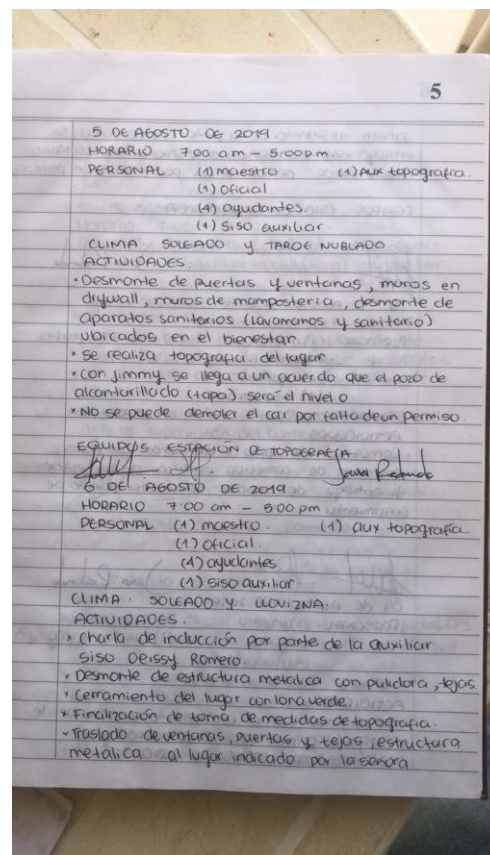 5
5 DE AGOSTO DE 2019.
HORARIO 7:00 am - 5:00 p.m
PERSONAL (1) maestro (1) Aux topografia.
(1) oficial
(4) ayudantes
(1) siso auxiliar.
CLIMA SOLEADO Y TARDE NUBLADO
ACTIVIDADES:
• Desmonte de puertas y ventanas, muros en
drywall, muros de mamposteria, desmonte de
aparatos sanitarios (Lavamanos y sanitario)
ubicados en el bienestar
* se realiza topografia del lugar.
* con Jimmy se llega a un acuerdo que el pozo de
alcantarillado (tapa) será el nivel 0
* No se puede demoler el car por falta de un permiso.
EQUIPOS ESTACIÓN DE TOPOGRAFIA
6 DE AGOSTO DE 2019
HORARIO 7:00 am - 5:00 pm
PERSONAL (1) maestro. (1) aux topografia
(1) oficial.
(4) ayudantes
(1) siso auxiliar.
CLIMA. SOLEADO Y LLOVIZNA.
ACTIVIDADES.
* charla de inducción por parte de la auxiliar
siso Deissy Romero.
* Desmonte de estructura metalica con pulidora, tejas
* cerramiento del lugar con lona verde.
* Finalización de toma de medidas de topografia.
* Traslado de ventanas, puertas y tejas, estructura
metalica al lugar indicado por la señora